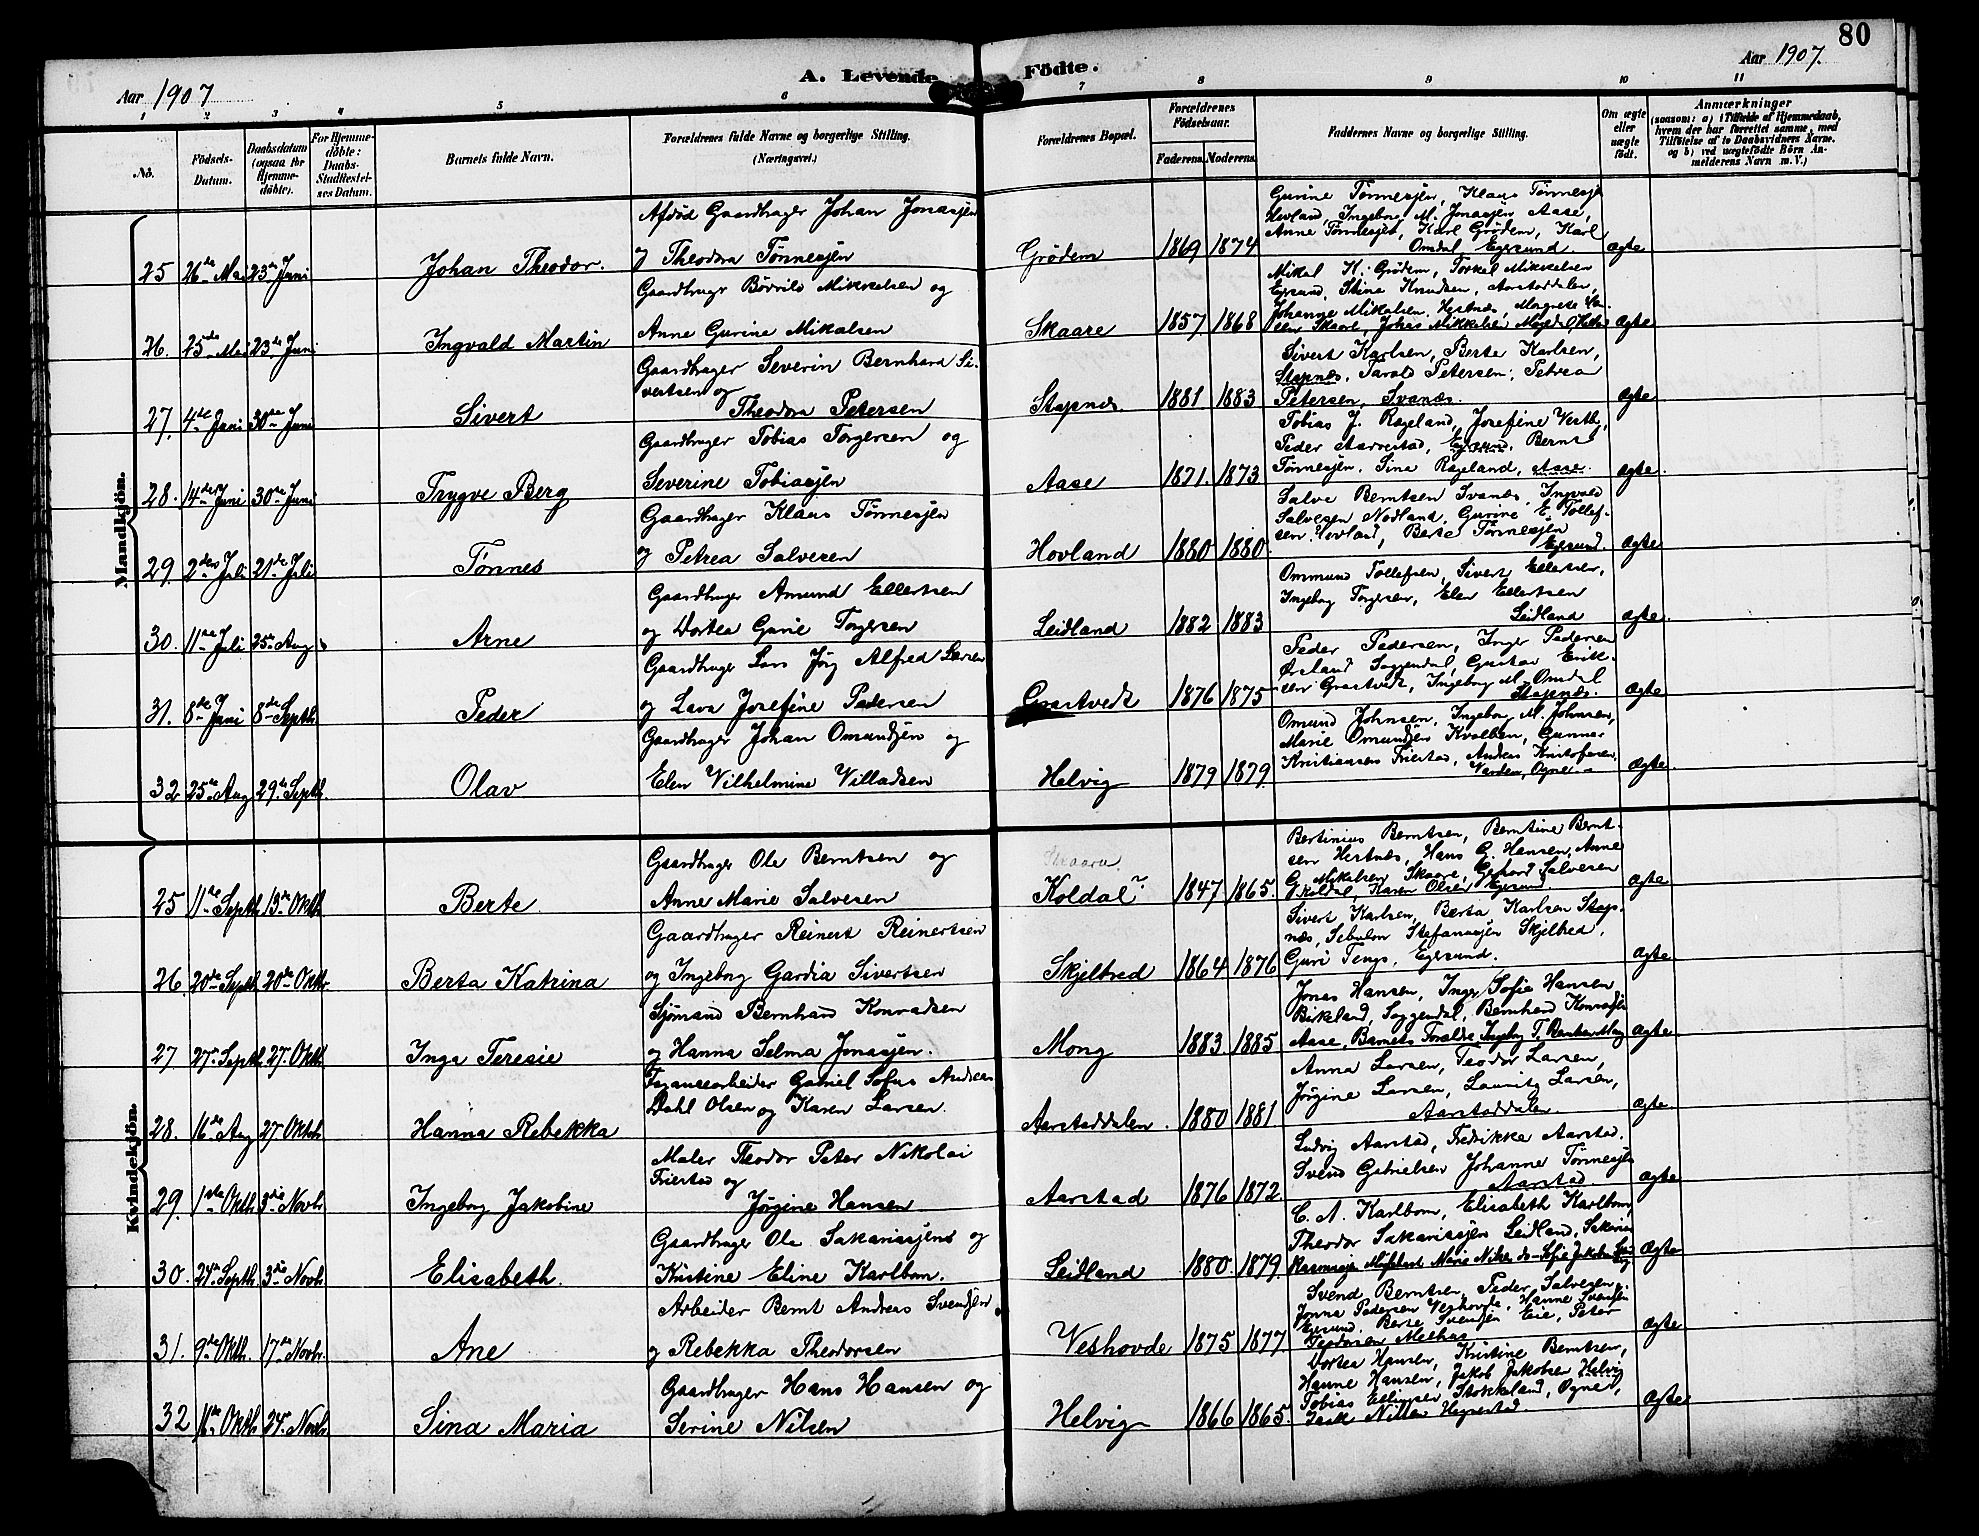 80
A. Levende Födte.
Aar 1907
Aar 1907.
1 2 3 4 5 6 7 8 9 10 11
No.
Födsels-
Datum.
Daabsdatum
(ogsaa for
Hjemme-
döbte).
For Hjemme-
döbte:
Daabs-
Stadfestel-
ses Datum.
Barnets fulde Navn.
Forældrenes fulde Navne og borgerlige Stilling.
(Næringsvei.)
Forældrenes Bopæl.
Forældrenes
Födselsaar.
Faderens. Moderens.
Faddernes Navne og borgerlige Stilling.
Om ægte
eller
uægte
født.
Anmærkninger
(saasom: a) i Tilfælde af Hjemmedaab,
hvem der har forrettet samme, med
Tilföielse af to Daabsvidners Navne.
og b) ved uægtefödte Börn An-
melderens Navn m. V.)
Mandkjön.
25 26de Mai 23de Juni
Johan Theodor.
Afdød Gaardbruger Johan Jonassen
og Theodora Tønnesen
Grødem
1869 1874
Gurine Tønnesen, Klaus Tønnesen
Hovland, Ingeborg M. Jonassen Aase,
Anne Tønnesen, Karl Grødem, Karl
Omdal Egersund
ægte
26. 25de Mai 23de Juni
Ingvald Martin
Gaardbruger Børrild Mikkelsen og
Anne Gurine Mikalsen
Skaare
1857 1868
Mikal H. Grødem, Torkel Mikkelsen
Egersund, Stine Knudsen, Aarstaddalen,
Johanne Mikalsen, Hestnes, Magrete
ægte
27. 4de Juni 30te Juni
Sivert
Gaardbruger Severin Bernhard Si-
vertsen og
Theodora Petersen
Stapnes
1881 1883
Sivert Karlsen, Berte Karlsen,
Stapnæs, Tarald Petersen, Petrea
Petersen, Svanæs.
ægte
28. 14de Juni 30te Juni
Trygve Berg
Gaardbruger Tobias Torgersen og
Severine Tobiassen
Aase
1871. 1873
Tobias J. Rageland, Josefine Vestby,
Peder Aarrestad, Egersund, Bernt
Tønnesen, Sina Rageland, Aase.
ægte.
29. 2den Juli 21de Juli
Tønnes
Gaardbruger Klaus Tønnesen
og Petrea Salvesen
Hovland
1880 1880.
Salve Berntsen Svanæs, Ingvald
Salvesen Nodland, Gurine E. Tollef-
sen Hovland, Berte Tønnesen
Egersund.
ægte
30. 11te Juli 25de Aug
Arne
Gaardbruger Amund Ellertsen
og Dortea Gurie Torgersen
Leidland
1882 1883
Ommund Tollefsen, Sivert Ellertsen,
Ingeborg Torgersen, Elen Ellertsen
Leidland
ægte.
31. 8de Juni 8de Septb.
Peder
Gaardbruger Lars Jørg Alfred Larsen
og Lava Josefine Pedersen
Grastvedt
1876 1875
Peder Pedersen, Inger Pedersen
Ørsland Soggendal, Gustav Erik-
sen Grastvedt, Ingeborg M. Omdal
Stapnæs.
ægte
32 25de Aug 29de Septb.
Olav
Gaardbruger Johan Omundsen og
Elen Vilhelmine Villadsen
Helvig
1879 1879
Omund Johnsen, Ingeborg M. Johnsen,
Marie Omundsen Kvalben, Gunnar
Kristiansen Friestad, Andreas Kristofersen,
Varden, Ogne.
ægte
Kvindekjön.
25 11te Septb. 13de Oktb
Berte
Gaardbruger Ole Berntsen og
Anne Marie Salvesen
Skaara
Koldal
1847 1865.
Bertinius Berntsen, Berntine Bernt-
sen Hestnæs, Hans G. Hansen, Anne
G. Mikalsen Skaare, Gerhard Salvesen
Koldal, Karen Olsen Egersund
ægte
26. 20de Septb. 20de Oktbr
Berta Katrina
Gaardbruger Reinert Reinertsen
og Ingeborg Gardia Sivertsen
Skjelbred
1864 1876
Sivert Karlsen, Berta Karlsen Stap-
næs, Sebulon Stefanussen Skjelbred,
Guri Tengs, Egersund.
ægte
27 27de Septb. 27. Oktb
Inga Teresie
Sjømand Bernhard Konradsen
og Hanna Selma Jonassen.
Mong
1883 1885
Jonas Hansen, Inger Sofie Hansen
Birkeland, Soggendal, Bernhard Konradsen
Aase, Barnets Forældre, Ingeborg T.
ægte
28. 16de Aug 27. Oktb
Hanna Rebekka
Fayancearbeider Gabriel Sofus Andreas
Dahl Olsen og Karen Larsen.
Aarstaddalen.
1880 1881
Anna Larsen, Teodor Larsen,
Jørgine Larsen, Lauritz Larsen,
Aarstaddalen.
ægte.
29. 1ste Oktb. 3die Novb.
Ingeborg Jakobine
Maler Theodor Peter Nikolai
Friestad og
Jørgine Hansen
Aarstad
1876 1872
Ludvig Aarstad, Fredrikke Aarstad.
Svend Gabrielsen Johanne Tønnesen
Aarstad
ægte
30. 24de Septb. 3die Novb.
Elisabeth.
Gaardbruger Ole Sakariassen og
Kristine Eline Karlbom.
Leidland
1880. 1879.
C. A. Karlbom, Elisabeth Karlbom,
Theodor Sakariassen Leidland, Sakarias
ægte
31. 9de Oktb. 17de Novb.
Ane
Arbeider Bernt Andreas Svendsen
og Rebekka Theodorsen
Veshovde
1875 1877
Svend Berntsen, Peder Salvesen,
Jonna Pedersen Veshovde, Hanne Svendsen
Egersund, Berte Svendsen Eie, Peter
Teodorsen Melhus
ægte
32 16de Oktb 24de Novb.
Sina Maria
Gaardbruger Hans Hansen og
Serine Nilsen
Helvig
1866 1865.
Dortea Hansen, Kristine Berntsen,
Hanne Hansen, Jakob Jakobsen Helvig
Tobias Ellingsen Stokkeland, Ogne,
Isak Nilsen Hegrestad.
ægte